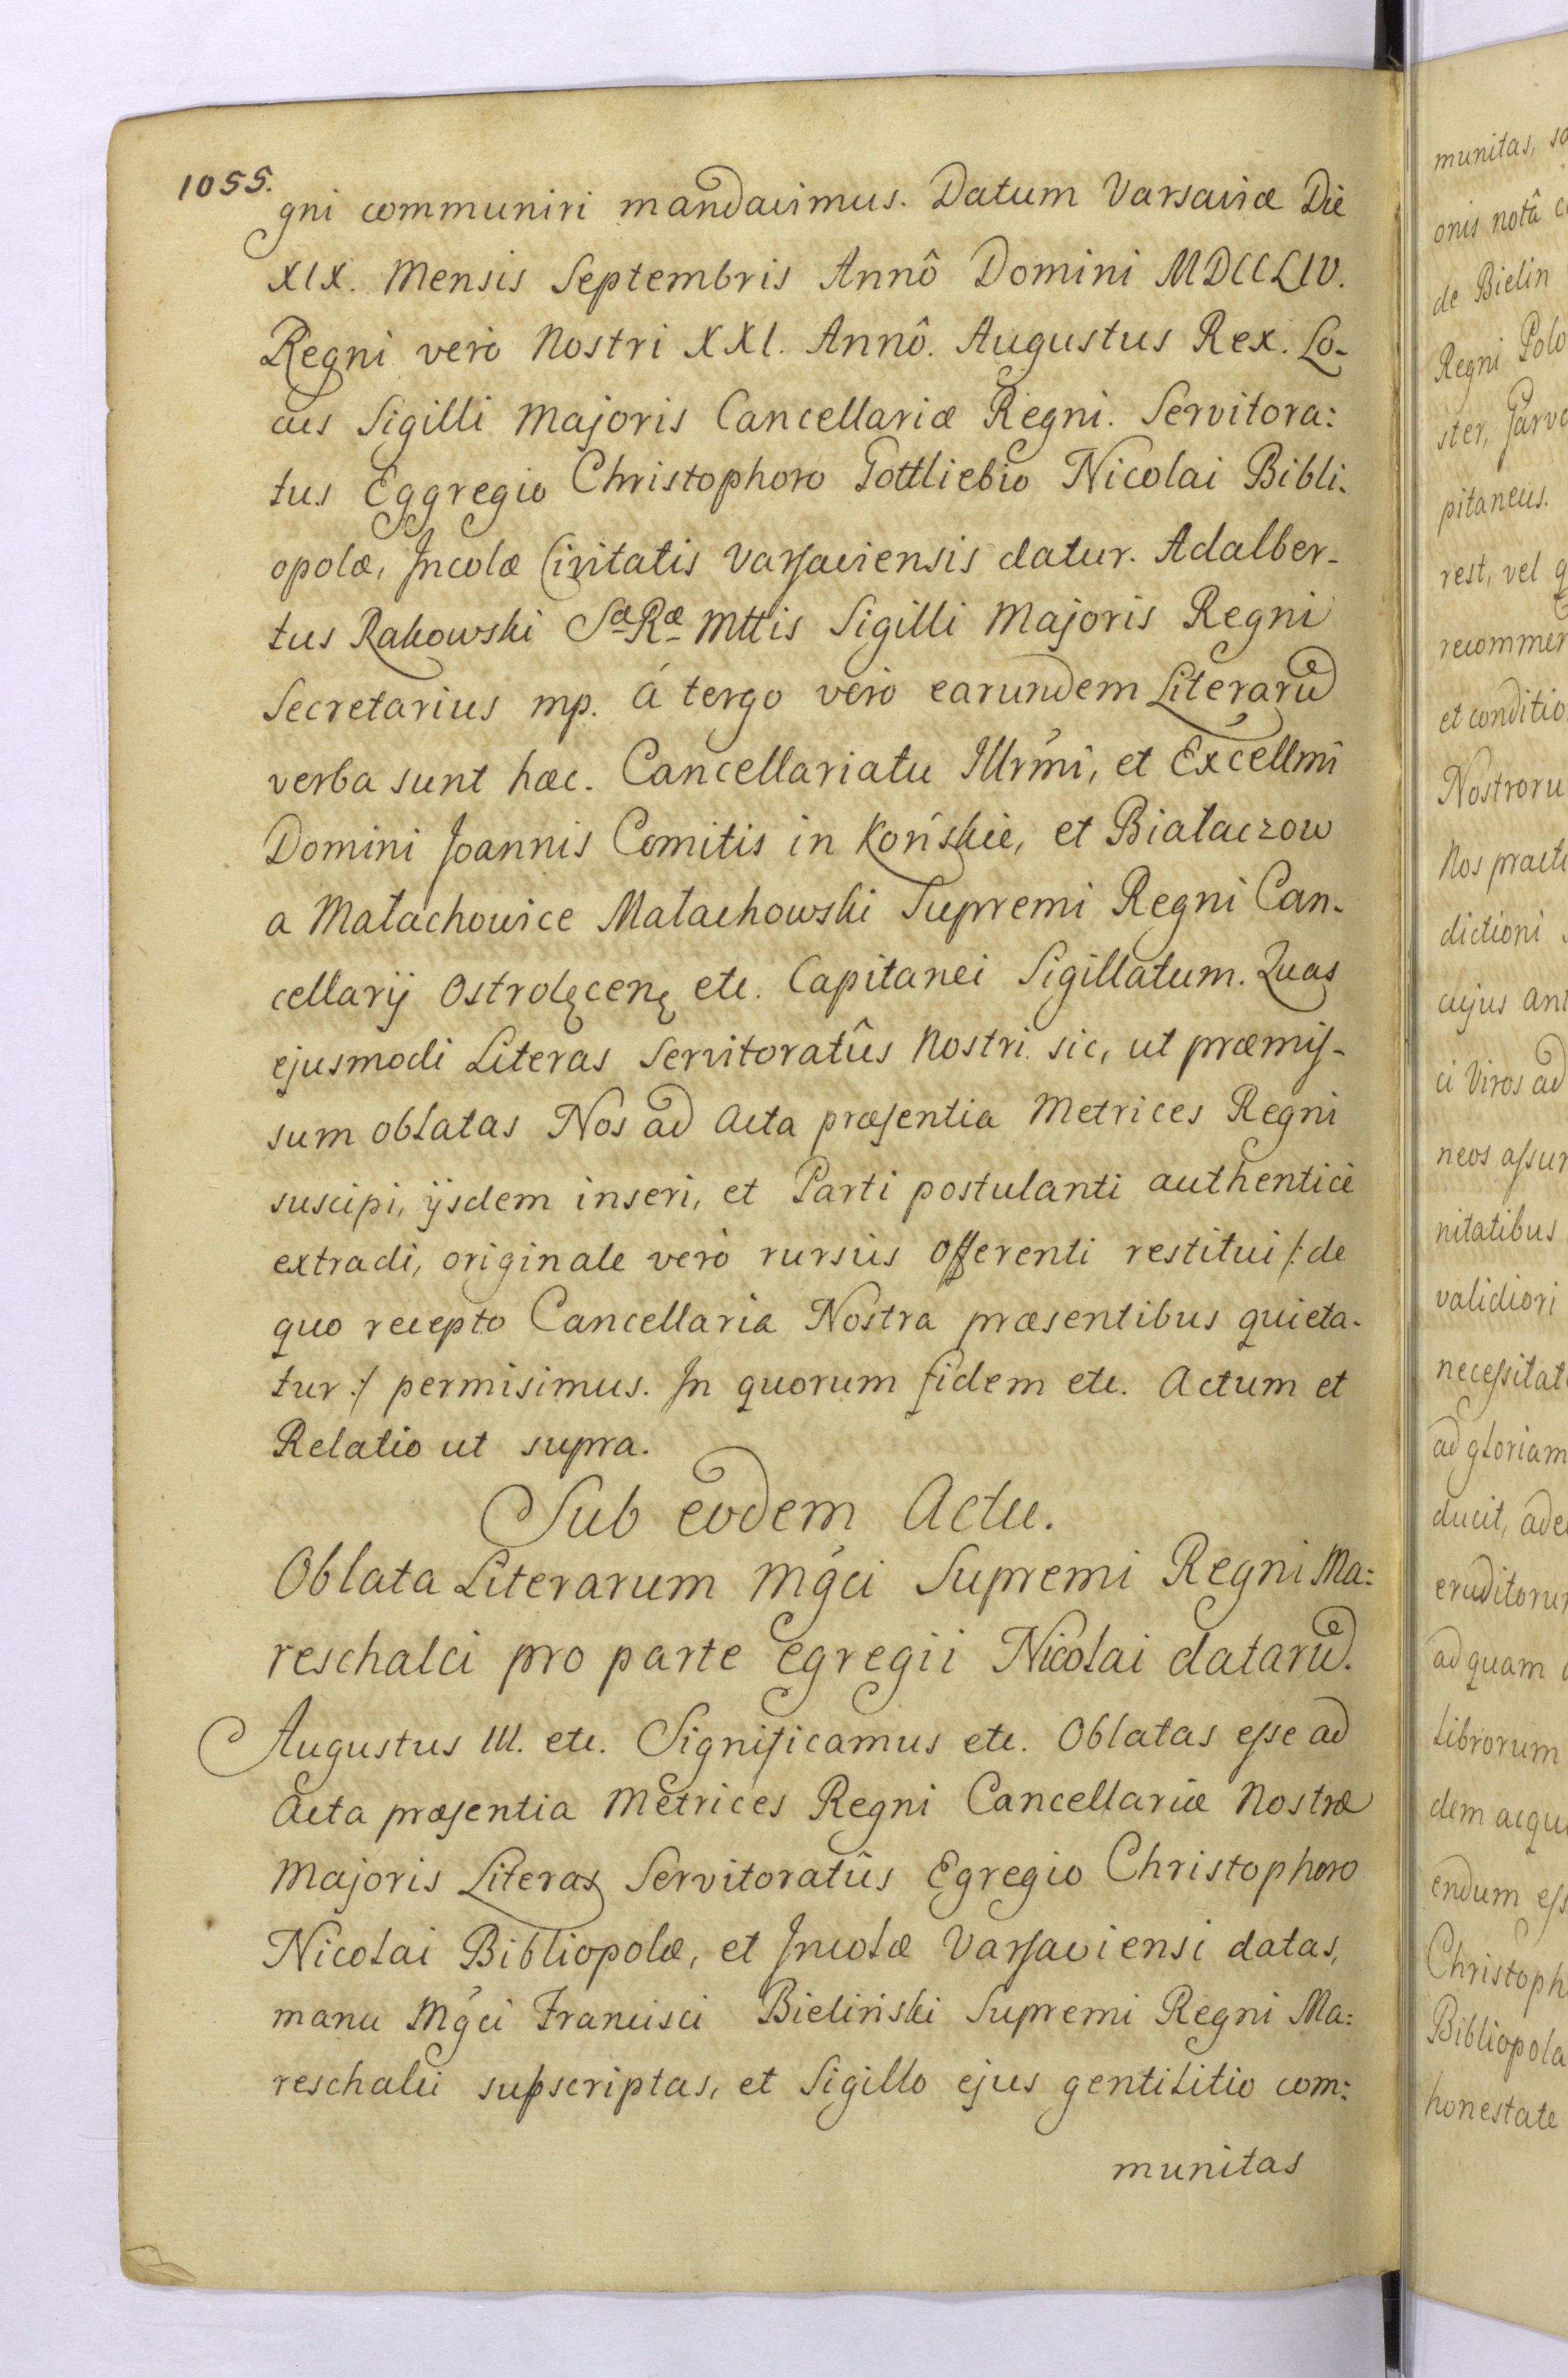 1055.
gni communiri mandavimus. Datum Varsaviæ Die
XIX. Mensis Septembris Annô Domini MDCCLIV.
Regni verò Nostri XXI. Annô. Augustus Rex. Lo-
cus Sigilli Majoris Cancellariæ Regni. Servitora:
tus Eggregio Christophoro Gottliebio Nicolai Bibli-
opolæ, Incolæ Civitatis Varsaviensis datur. Adalber-
tus Rakowski Sæ Ræ Mttis Sigilli Majoris Regni
Secretarius mp. á tergo verò earundem Literarū
verba sunt hæc. Cancellariatu Illrmi, et Excellmi
Domini Joannis Comitis in Końskie, et Białaczow
a Małachowice Małachowski Supremi Regni Can-
cellarij Ostrołęcenę etc. Capitanei Sigillatum. Quas
ejusmodi Literas Servitoratûs Nostri sic, ut præmis-
sum oblatas Nos ad Acta præsentia Metrices Regni
suscipi, ijsdem inseri, et Parti postulanti authenticè
extradi, originale verò rursùs Offerenti restitui /: de
quo recepto Cancellaria Nostra præsentibus quieta-
tur :/ permisimus. In quorum fidem etc. Actum et
Relatio ut supra.
Sub eodem Actu.
Oblata Literarum Mgci Supremi Regni Ma:
reschalci pro parte egregii Nicolai datarū.
Augustus III. etc. Significamus etc. Oblatas esse ad
Acta præsentia Metrices Regni Cancellariæ Nostræ
Majoris Literas Servitoratûs Egregio Christophoro
Nicolai Bibliopolæ, et Incolæ Varsaviensi datas,
manu Mgci Francisci Bieliński Supremi Regni Ma:
reschalci subscriptas, et Sigillo ejus gentilitio com:
munitas
munitas, so
onis notâ c
de Bielin
Regni Polo
ster, Garvo
pitaneus.
rest, vel q
recommen
et conditio
Nostroru
Nos practi
dictioni
cujus ant
ci Viros ad
neos assu
nitatibus
validiori
necessitat
ad gloriam
ducit, ade
eruditoru
ad quam
Librorum
dem acqui
endum ess
Christoph
Bibliopola
honestate